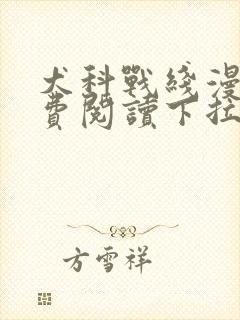 犬科戰綫漫
費閱讀下拉
方雪祥